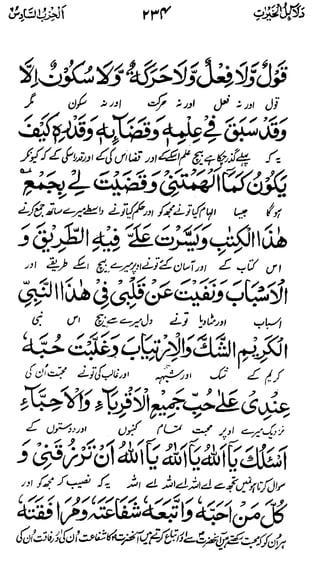 دلائل الخیرات ۲۳۴ الحزب السادس
قَوْلٌ وَّلَا فِعْلٌ وَّلَا حَرَكَةٌ وَّلَا سُكُوْنٌ اِلَّا
قول اور نہ فعل اور نہ حرکت اور نہ سکون مگر
وَقَدْ سَبَقَ فِيْ عِلْمِهٖ وَقَضَآئِهٖ وَقَدَرِهٖ كَيْفَ
یہ کہ پہلے گذر چکا ہے بیچ علم اسکے کے اور قضا اس کی کے اور قدر اسکی کے کہ کیونکر
يَكُوْنُ كَمَآ اَلْهَمْتَنِيْ وَقَضَيْتَ لِيْ بِجَمْعِ
ہوگا جیسا الہام کیا تونے مجھ کو اور حکم کیا تونے واسطے میرے ساتھ جمع کرنے
هٰذَا الْكِتٰبِ وَيَسَّرْتَ عَلَيَّ فِيْهِ الطَّرِيْقَ وَ
اس کتاب کے اور آسان کئے تونے اوپر میرے بیچ اسکے طریقے اور
الْاَسْبَابَ وَنَفَيْتَ عَنْ قَلْبِيْ فِيْ هٰذَا النَّبِيِّ
اسباب اور مٹا دیا تونے دل میرے سے بیچ اس نبی
الْكَرِيْمِ الشَّكَّ وَالْاِرْتِيَابَ وَغَلَّبْتَ حُبَّهٗ
کریم کے شک اور شبہہ اور غالب کی تونے محبت اُن کی
عِنْدِيْ عَلٰى حُبِّ جَمِيْعِ الْاَقْرِبَآءِ وَالْاَحِبَّآءِ
نزدیک میرے اوپر محبت تمام کنبوں اور دوستوں کے
اَسْئَلُكَ يَآ اَللّٰهُ يَآ اَللّٰهُ يَآ اَللّٰهُ اَنْ تَرْزُقَنِيْ وَ
سوال کرتا ہوں تجھ سے اے اللہ اے اللہ اے اللہ یہ کہ نصیب کر مجھ کو اور
كُلَّ مَنْ اَحَبَّهٗ وَاتَّبَعَهٗ شَفَاعَتَهٗ وَمُرَافَقَتَهٗ
ہر اُن کو کہ محبت رکھتے ہیں آنحضرت سے و اتباع کرتے ہیں آنحضرت کا شفاعت اُن کی و رفاقت اُن کی